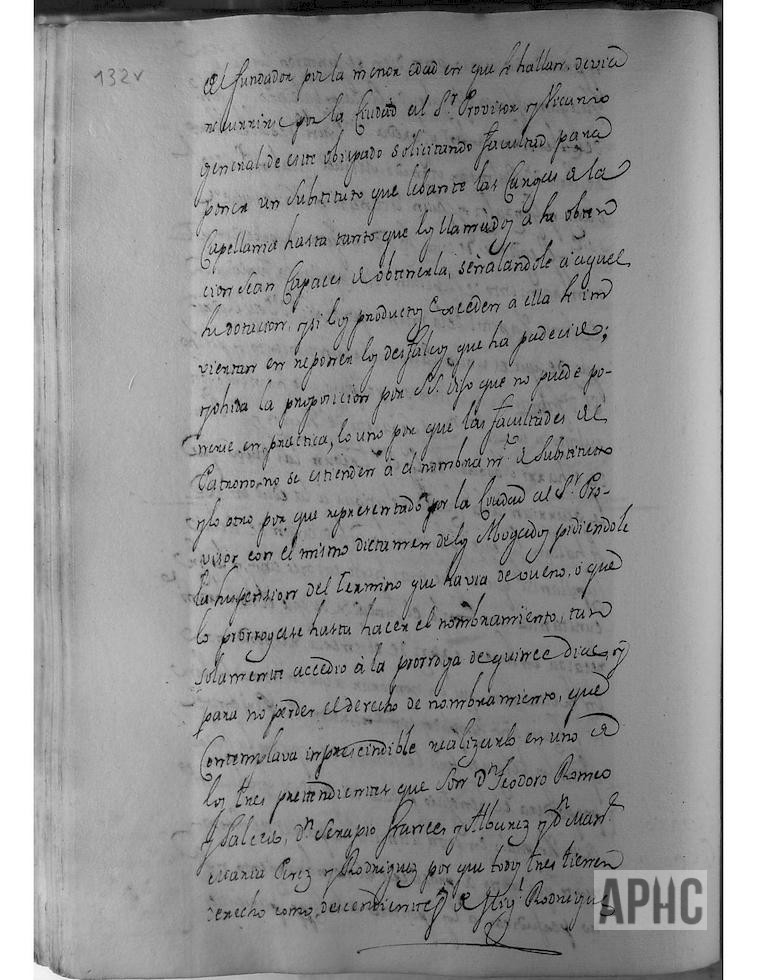 132v
el fundador por la menor edad en que se hallan, devia
recurrirse por la Ciudad al S.r Provisor y Vicario
general de este obispado solicitando facultad para
poner un Substituto que lebante las Cargas de la
Capellania hasta tanto que los llamados a su obten
cion sean Capaces de obtenerla, señalandole a aquel
su dotacion, y si los productos exceden a ella se in
viertan en reponer los desfalcos que ha padecido;
y ohida la proposicion por SS. dijo que no puede po-
nerse en practica, lo uno por que las facultades del
Patrono no se estienden à el nombram.to de Substituto
y lo otro por que representado por la Ciudad al S.r Pro-
visor con el mismo dictamen de los Abogados pidiendole
la suspension del termino que havia de oueno, o que
lo prorrogase hasta hacer el nombramiento, tan
solamente accedio à la prorroga de quince dias, y
para no perder el derecho de nombramiento, que
Contemplava inprescindible realizarlo en uno de
los tres pretendientes que son D.n Teodoro Romeo
y Salcedo, D.n Serapio Garces y Alburez y D.n Man.l
Maria Perez y Rodriguez por que todos tres tienen
derecho como descendientes de Rodriguez
APHC